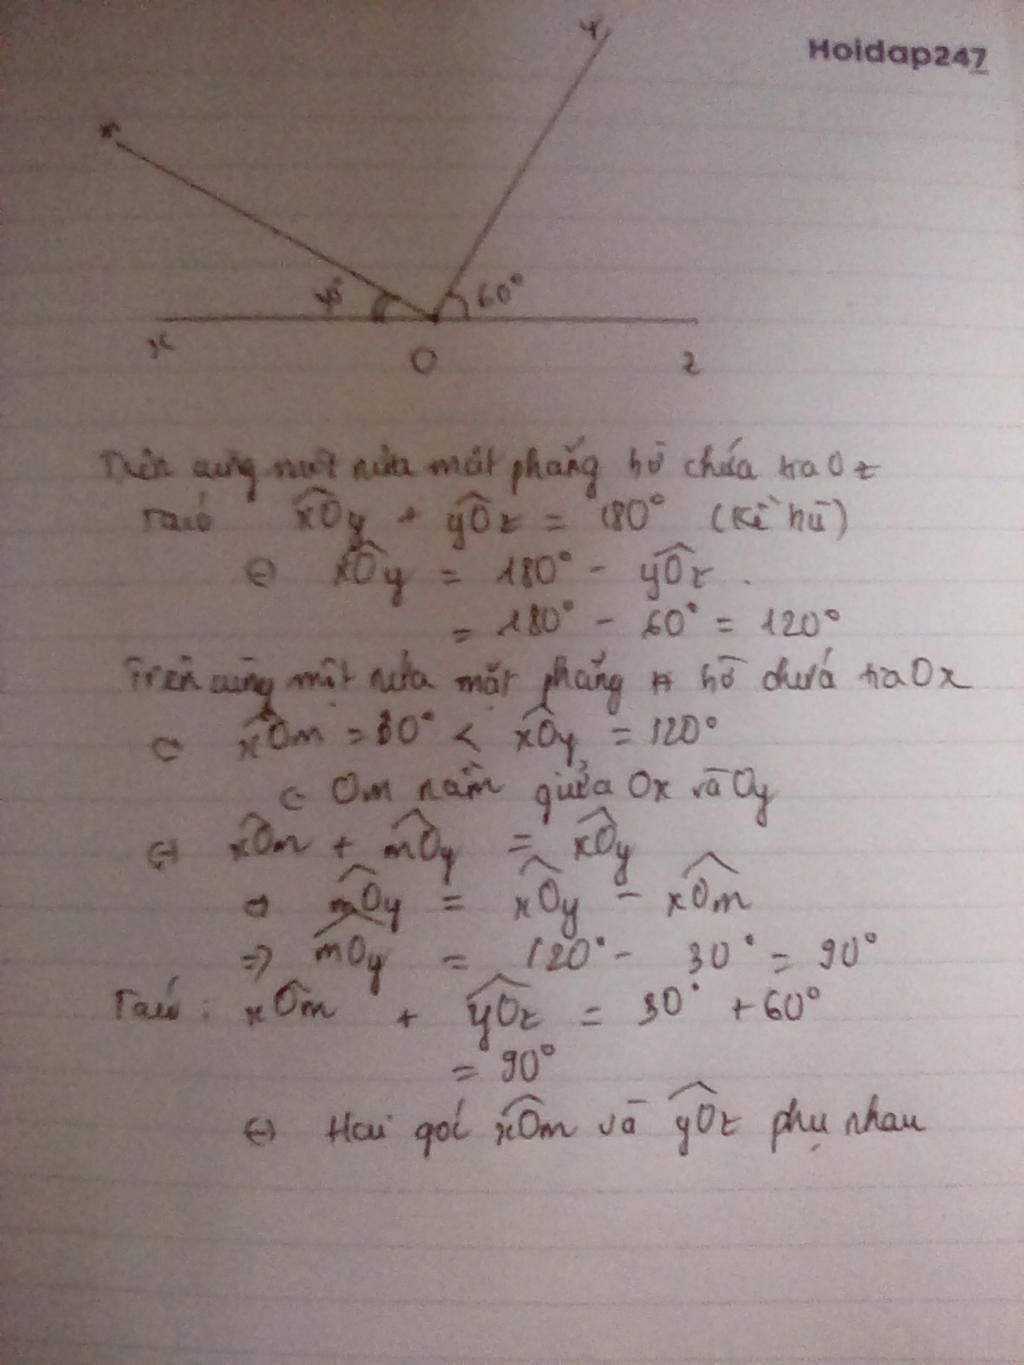 Hoidap247
y
m
60°
x
O
z
Trên cùng một nửa mặt phẳng bờ chứa tia Oz
Ta có x̂Oy + ŷOz = 180° (Kề bù)
⇔ x̂Oy = 180° - ŷOz
= 180° - 60° = 120°
Trên cùng một nửa mặt phẳng bờ chứa tia Ox
x̂Om = 30° < x̂Oy = 120°
Om nằm giữa Ox và Oy
⇔ x̂Om + m̂Oy = x̂Oy
⇔ m̂Oy = x̂Oy - x̂Om
=> m̂Oy = 120° - 30° = 90°
Ta có : x̂Om + ŷOz = 30° + 60°
= 90°
⇔ Hai góc x̂Om và ŷOz phụ nhau